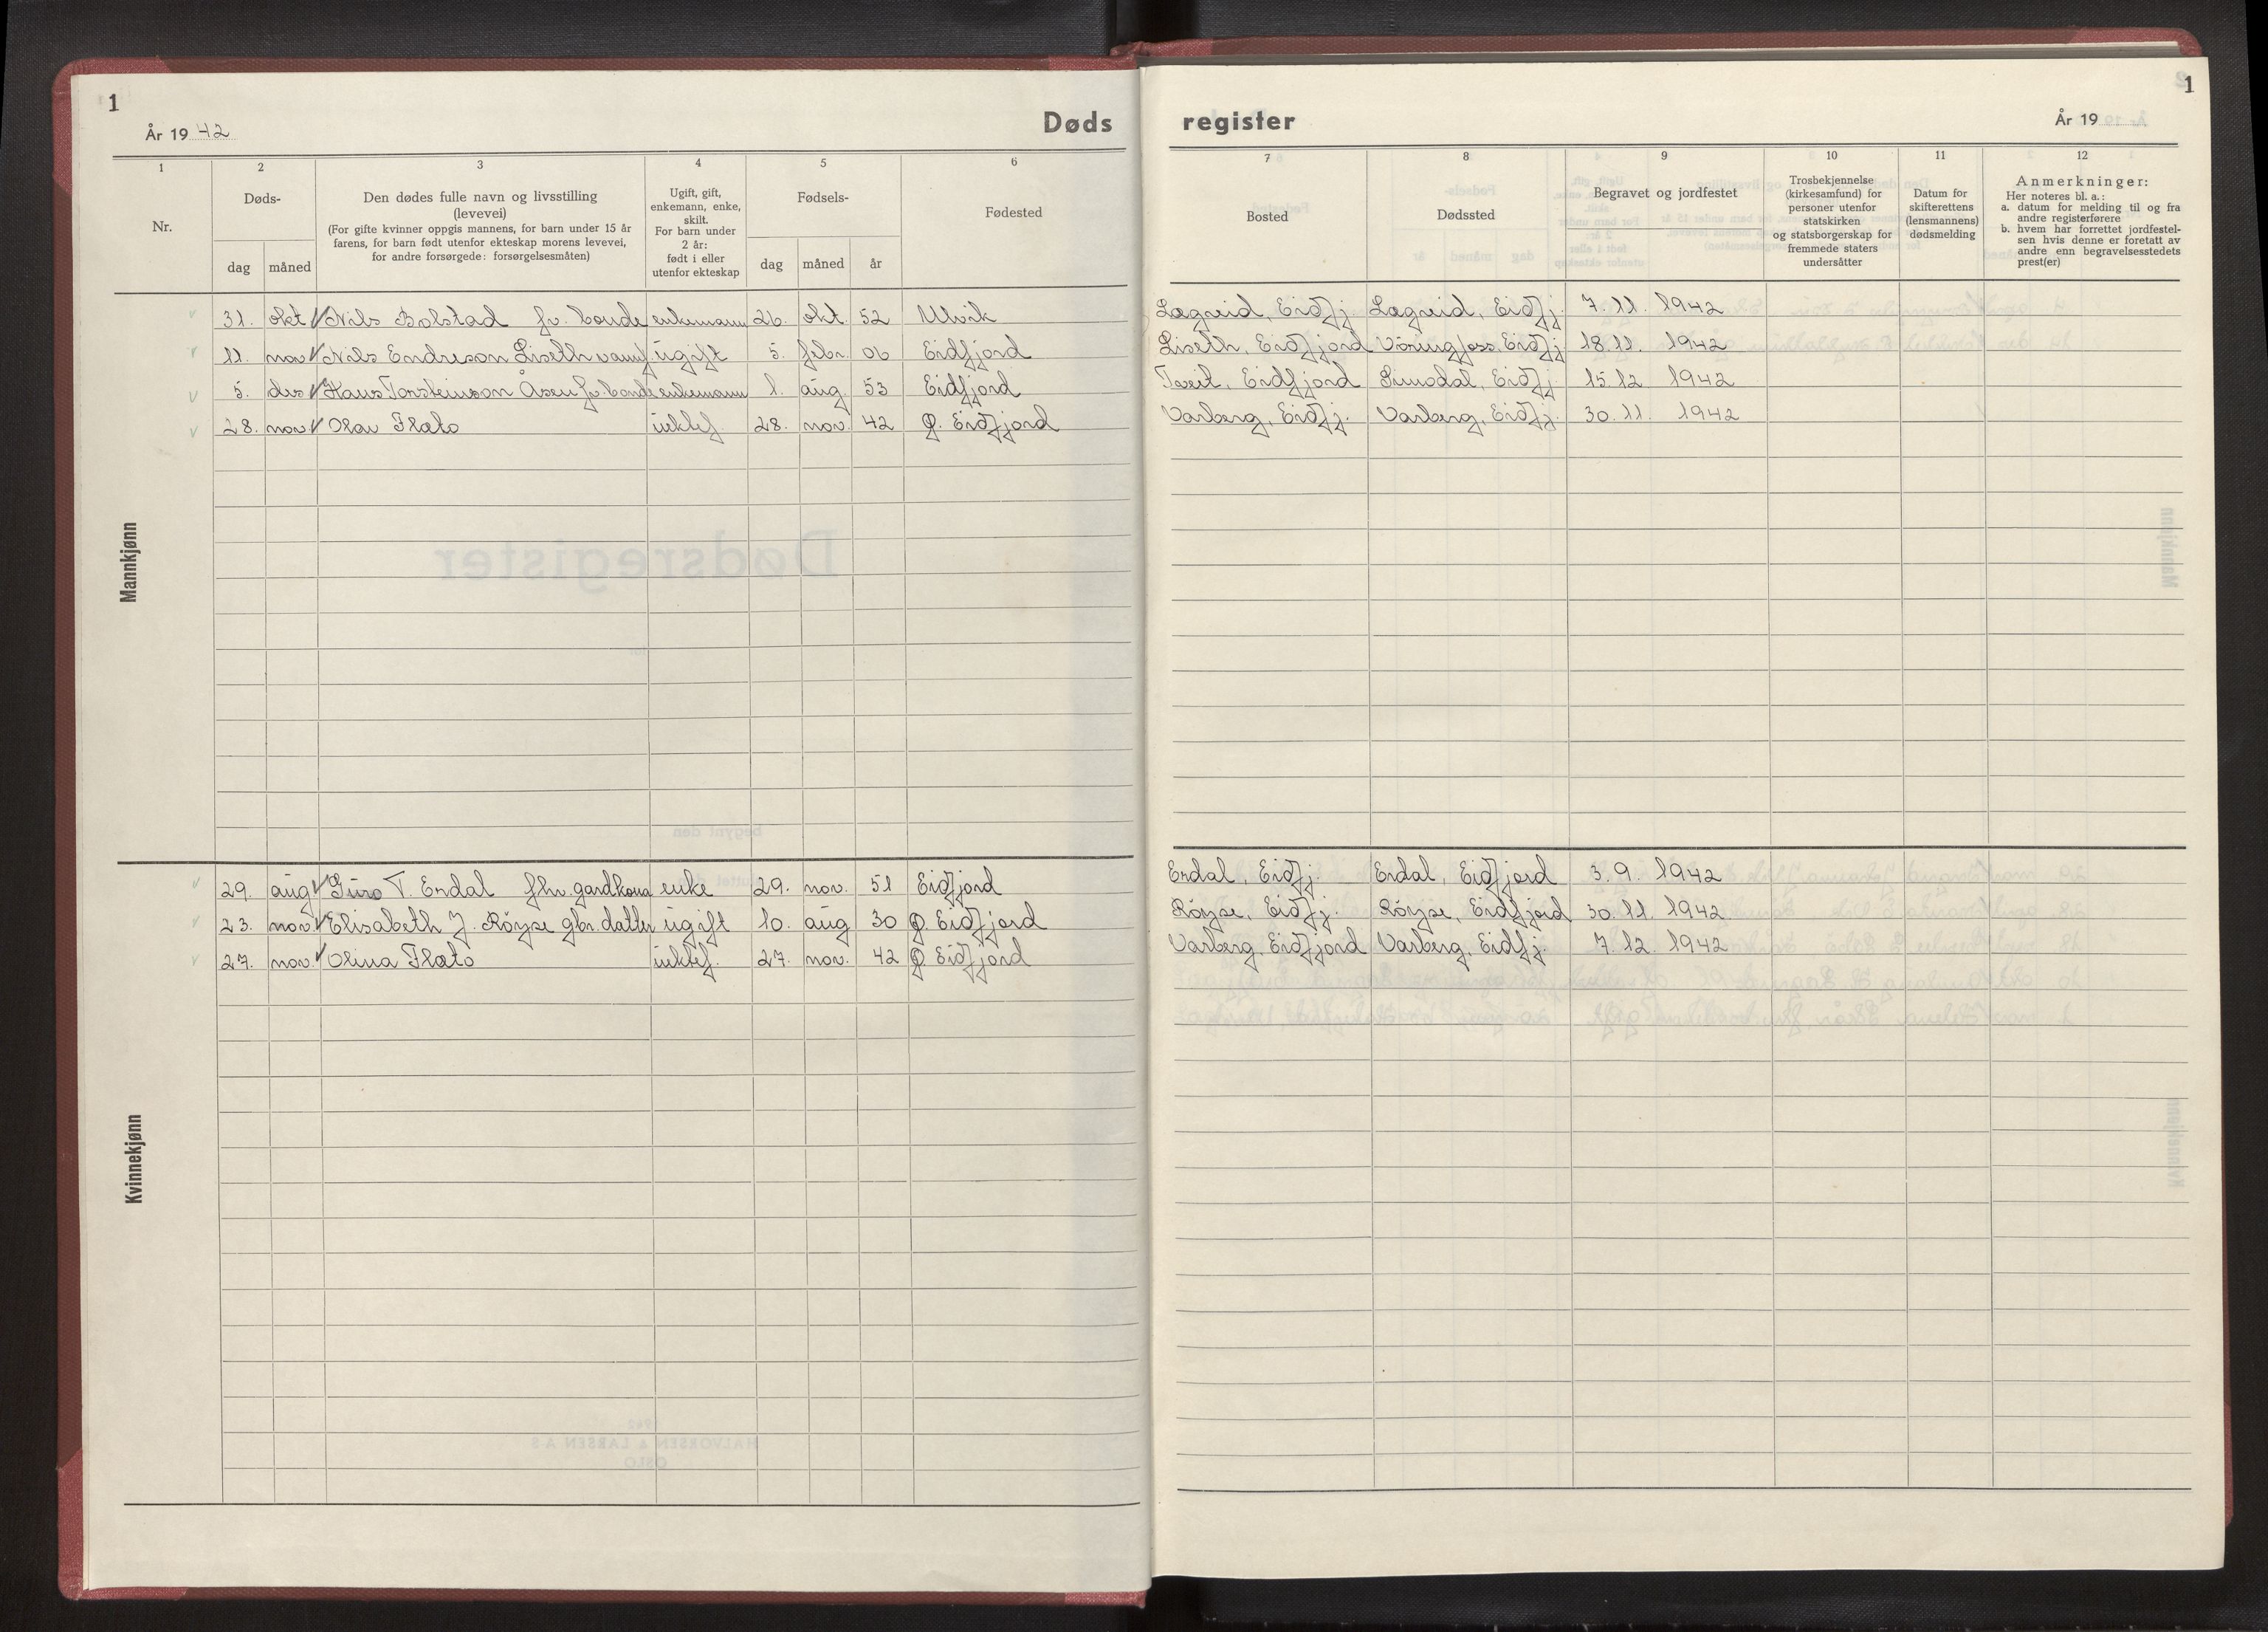 1
År 19 42
Døds
register
År 19
1
1 2 3 4 5 6
7 8 9 10 11 12
Nr.
Døds-
dag måned
Den dødes fulle navn og livsstilling
(levevei)
(For gifte kvinner oppgis mannens, for barn under 15 år
farens, for barn født utenfor ekteskap morens levevei,
for andre forsørgede: forsørgelsesmåten)
Ugift, gift,
enkemann, enke,
skilt.
For barn under
2 år:
født i eller
utenfor ekteskap
Fødsels-
dag måned år
Fødested
Bosted
Dødssted
Begravet og jordfestet
Trosbekjennelse
(kirkesamfund) for
personer utenfor
statskirken
og statsborgerskap for
fremmede staters
undersåtter
Datum for
skifterettens
(lensmannens)
dødsmelding
Anmerkninger:
Her noteres bl. a.:
a. datum for melding til og fra
andre registerførere
b. hvem har forrettet jordfestel-
sen hvis denne er foretatt av
andre enn begravelsesstedets
prest(er)
Mannkjønn
31. okt Nils Bolstad fv. bonde enkemann 26. okt. 52 Ulvik Lægreid, Eidfj. Lægreid, Eidfj. 7. 11. 1942
11. nov Nils Endreson Liseth ugift 5. febr. 06 Eidfjord Liseth, Eidfjord Vöringfoss, Eidfj. 18.11. 1942
5. des Hans Torsteinson Åsen fv. bonde enkemann 1. aug. 53 Eidfjord Tveit, Eidfjord Simodal, Eidfj. 15.12 1942
28. nov. Olav Flæto i ektef. 28. nov. 42 Ø. Eidfjord Varberg, Eidfj. Varberg, Eidfj. 30.11. 1942
Kvinnekjønn
29. aug Guro T. Erdal fhv. gardkona enke 29. nov. 51 Eidfjord Erdal, Eidfj. Erdal, Eidfjord 3.9. 1942
23. nov. Elisabeth J. Röyse gbr. datter ugift 10. aug 30 Ø. Eidfjord Röyse, Eidfj. Röyse, Eidfjord 30.11. 1942
27. nov. Olina Flæto i ektef. 27. nov. 42 Ø. Eidfjord Varberg, Eidfjord Varberg, Eidfj. 7.12. 1942